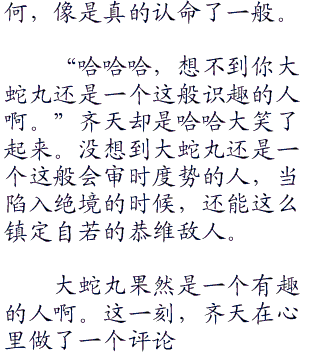 何，像是真的认命了一般。
“哈哈哈，想不到你大
蛇丸还是一个这般识趣的人
啊。”齐天却是哈哈大笑了
起来。没想到大蛇丸还是一
个这般会审时度势的人，当
陷入绝境的时候，还能这么
镇定自若的恭维敌人。
大蛇丸果然是一个有趣
的人啊。这一刻，齐天在心
里做了一个评论